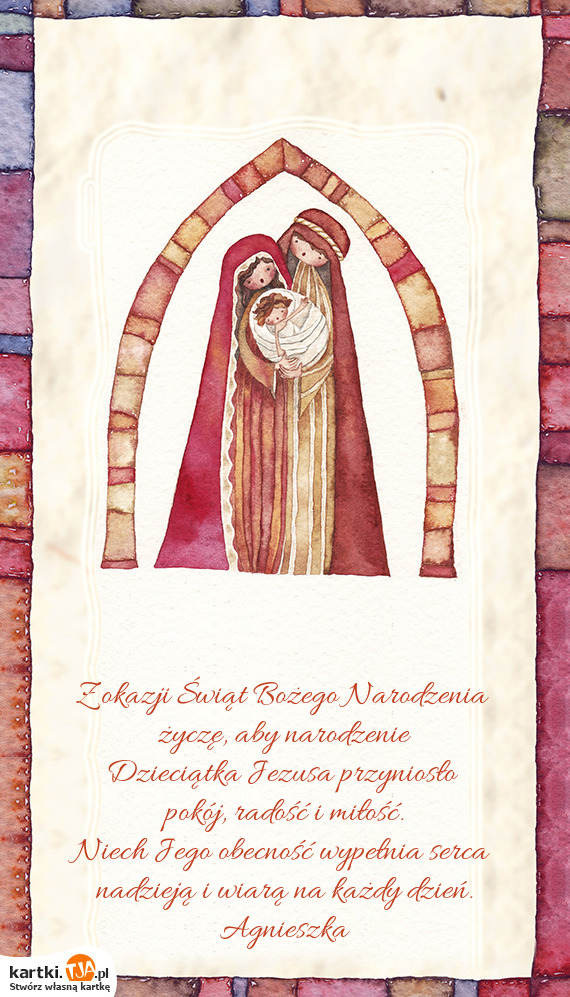 Z okazji Świąt Bożego Narodzenia
życzę, aby narodzenie
Dzieciątka Jezusa przyniosło
pokój, radość i miłość.
Niech Jego obecność wypełnia serca
nadzieją i wiarą na każdy dzień.
Agnieszka
kartki.TJA.pl
Stwórz własną kartkę